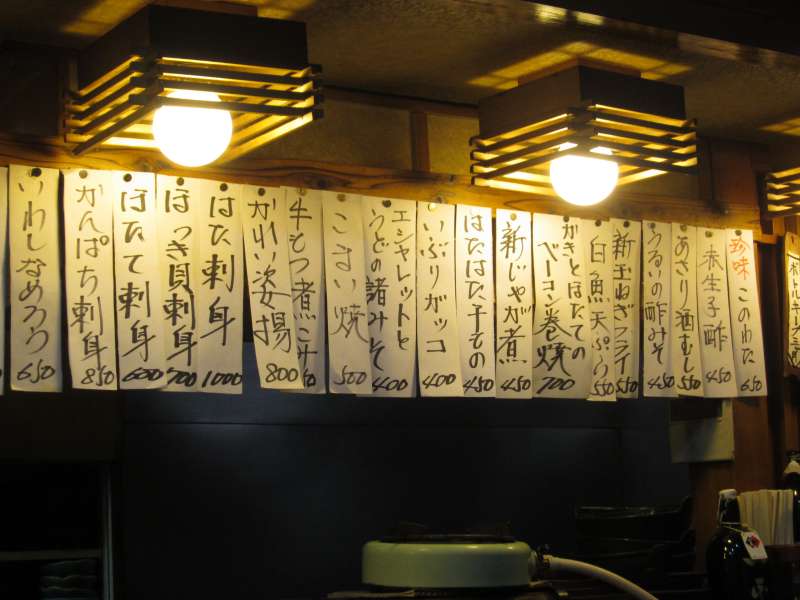 ボトルキープ
珍味 このわた 650
赤生子酢 450
あさり酒むし 550
うるいの酢みそ 450
新玉ねぎフライ 550
白魚天ぷら 550
かきとほたての
ベーコン巻焼 700
新じゃが煮 450
はたはた干もの 450
いぶりガッコ 400
エシャレットと
うどの諸みそ 400
こまい焼 500
牛もつ煮こみ
かれい姿揚 800
はた刺身 1000
ほっき貝刺身 700
ほたて刺身 600
かんぱち刺身 850
いわしなめろう 650